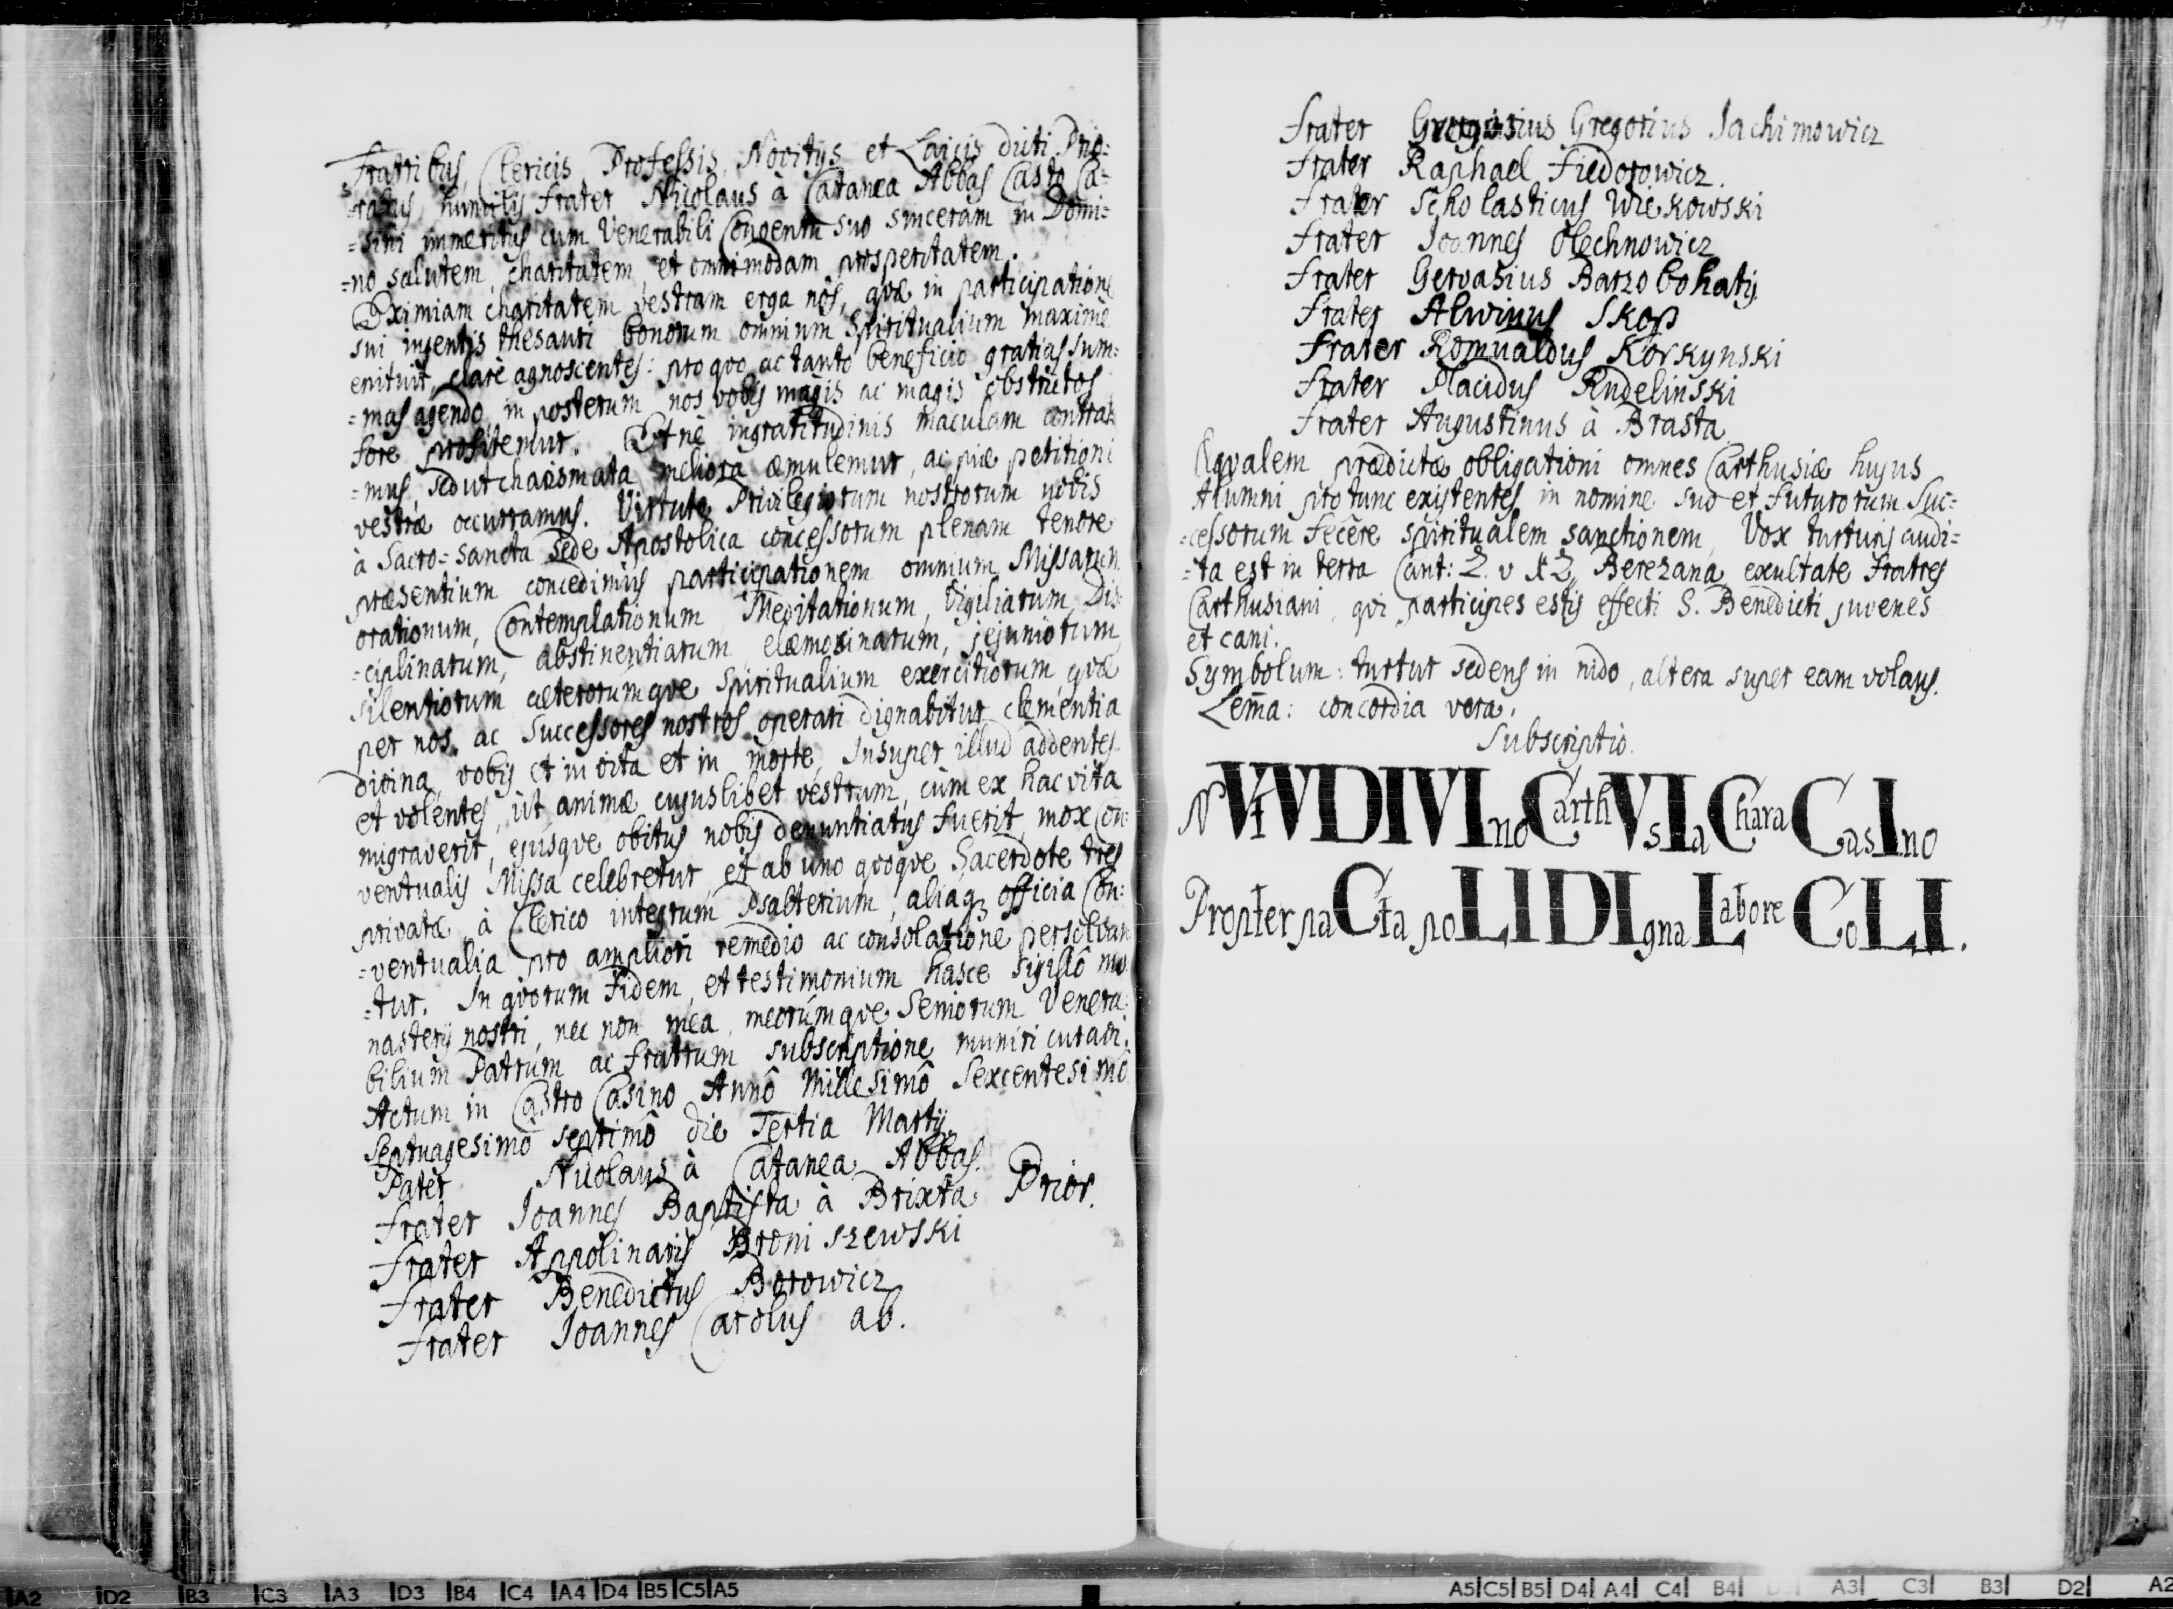 Fratribus, Clericis, Professis, Novitijs et Laicis dicti Prio=
=ratus, humilis frater Nicolaus à Catanea Abbas Castro Ca=
=sini immeritus cum Venerabili Conventu suo sinceram in Domi=
=no salutem, charitatem, et omnimodam prosperitatem.
Eximiam charitatem vestram erga nos, quæ in participatione
sui ingentis thesauri bonorum omnium Spiritualium maximè
enituit, clarè agnoscentes: pro quo ac tanto beneficio gratias sum=
=mas agendo, in posterum nos vobis magis ac magis obstrictos
fore profitemur. Et ne ingratitudinis maculam contraha
=mus, sed ut charismata meliora æmulemur, ac piæ petitioni
vestræ occurramus. Virtute Privilegiorum nostrorum nobis
à Sacro=sancta Sede Apostolica concessorum plenam tenore
præsentium concedimus participationem omnium Missarum
orationum, Contemplationum Meditationum, Vigiliarum, Dis=
=ciplinarum, abstinentiarum elæmosinarum, jejuniorum
silentiorum cæterorumque Spiritualium exercitiorum, quæ
per nos, ac Successores nostros operari dignabitur clementia
divina, vobis et in vita et in morte, Insuper illud addentes
et volentes, ut animæ cujuslibet vestrum, cùm ex hac vita
migraverit, ejusque obitus nobis denuntiatus fuerit, mox Con=
ventualis Missa celebretur, et ab uno quoque Sacerdote tres
privatæ, à Clerico integrum Psalterium, aliaq3 officia Con=
=ventualia pro ampliori remedio ac consolatione persolvan
=tur. In quorum Fidem, et testimonium hasce sigillô mo
nasterij nostri, nec non mea, meorúmque Seniorum Venera=
bilium Patrum ac fratrum subscriptione muniri curavi.
Actum in Castro Casino Annô Millesimô Sexcentesimô
Septuagesimô septimô die Tertia Martij.
Pater Nicolaus à Catanea Abbas.
frater Joannes Baptista à Brixta Prior.
frater Appolinaris Broniszewski
frater Benedictus Borowicz
frater Joannes Carolus ab.
frater Gregorius Jachimowicz
frater Raphael Fiedorowicz.
frater Scholasticus Wiekowski
frater Joannes Olechnowicz
frater Gervasius Barzobohatij
frater Alwinus Skop
frater Romualdus Korkynski
frater Placidus Rudelinski
frater Augustinus à Brasta
Æqvalem prædictæ obligationi omnes Carthusiæ hujus
Alumni pro tunc existentes in nomine suo et Futurorum Suc=
=cessorum fecêre spiritualem sanctionem, Vox turturis audi=
=ta est in terra Cant: 2. v 12, Berezana, exultate Fratres
Carthusiani, qvi participes estis effecti S. Benedicti juvenes
et cani.
Symbolum: turtur sedens in nido, altera super eam volans.
Lem̃a: concordia vera.
Subscriptio.
VIVDIVIno CarthVsIa Chara CasIno
Propter paCta poLI DIgna Labore CoLI.
A2 D2 B3 C3 A3 D3 B4 C4 A4 D4 B5 C5 A5
A5 C5 B5 D4 A4 C4 B4 A3 C3 B3 D2 A2